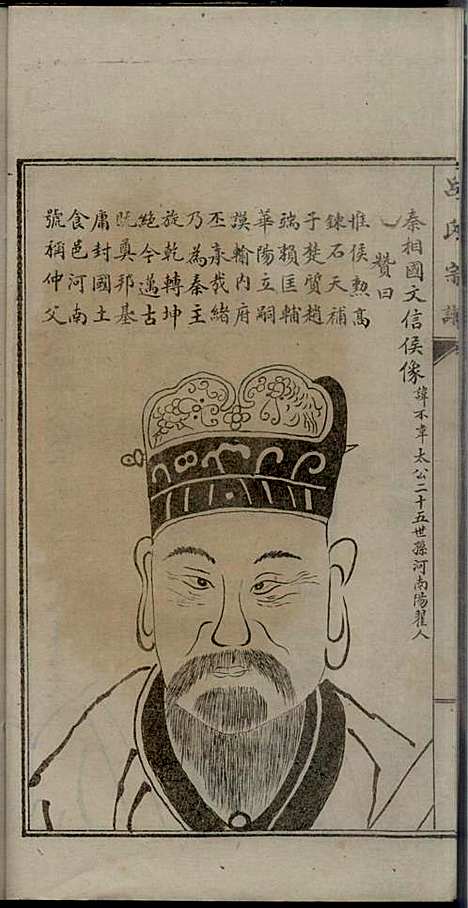 呂氏宗譜
秦相國文信侯像 諱不韋太公二十五世孫河南陽翟人
贊曰
惟侯勲高
鍊石天補
子楚質趙
端賴匡輔
華陽立嗣
謨輸內府
丕承哉緒
乃為秦主
旋乾轉坤
絕今邁古
既奠邦基
庸封國土
食邑河南
號稱仲父